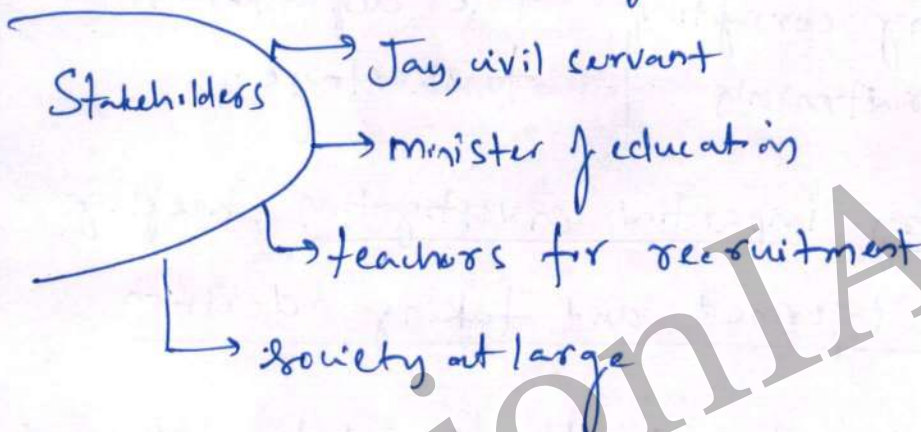 Stakeholders
Jay, civil servant
minister of education
teachers for recruitment
society at large
ionIA